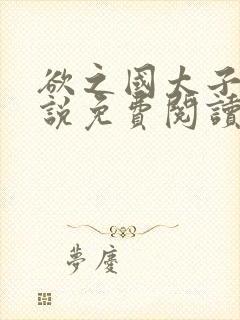 欲之國大子
說免費閱讀
夢慶